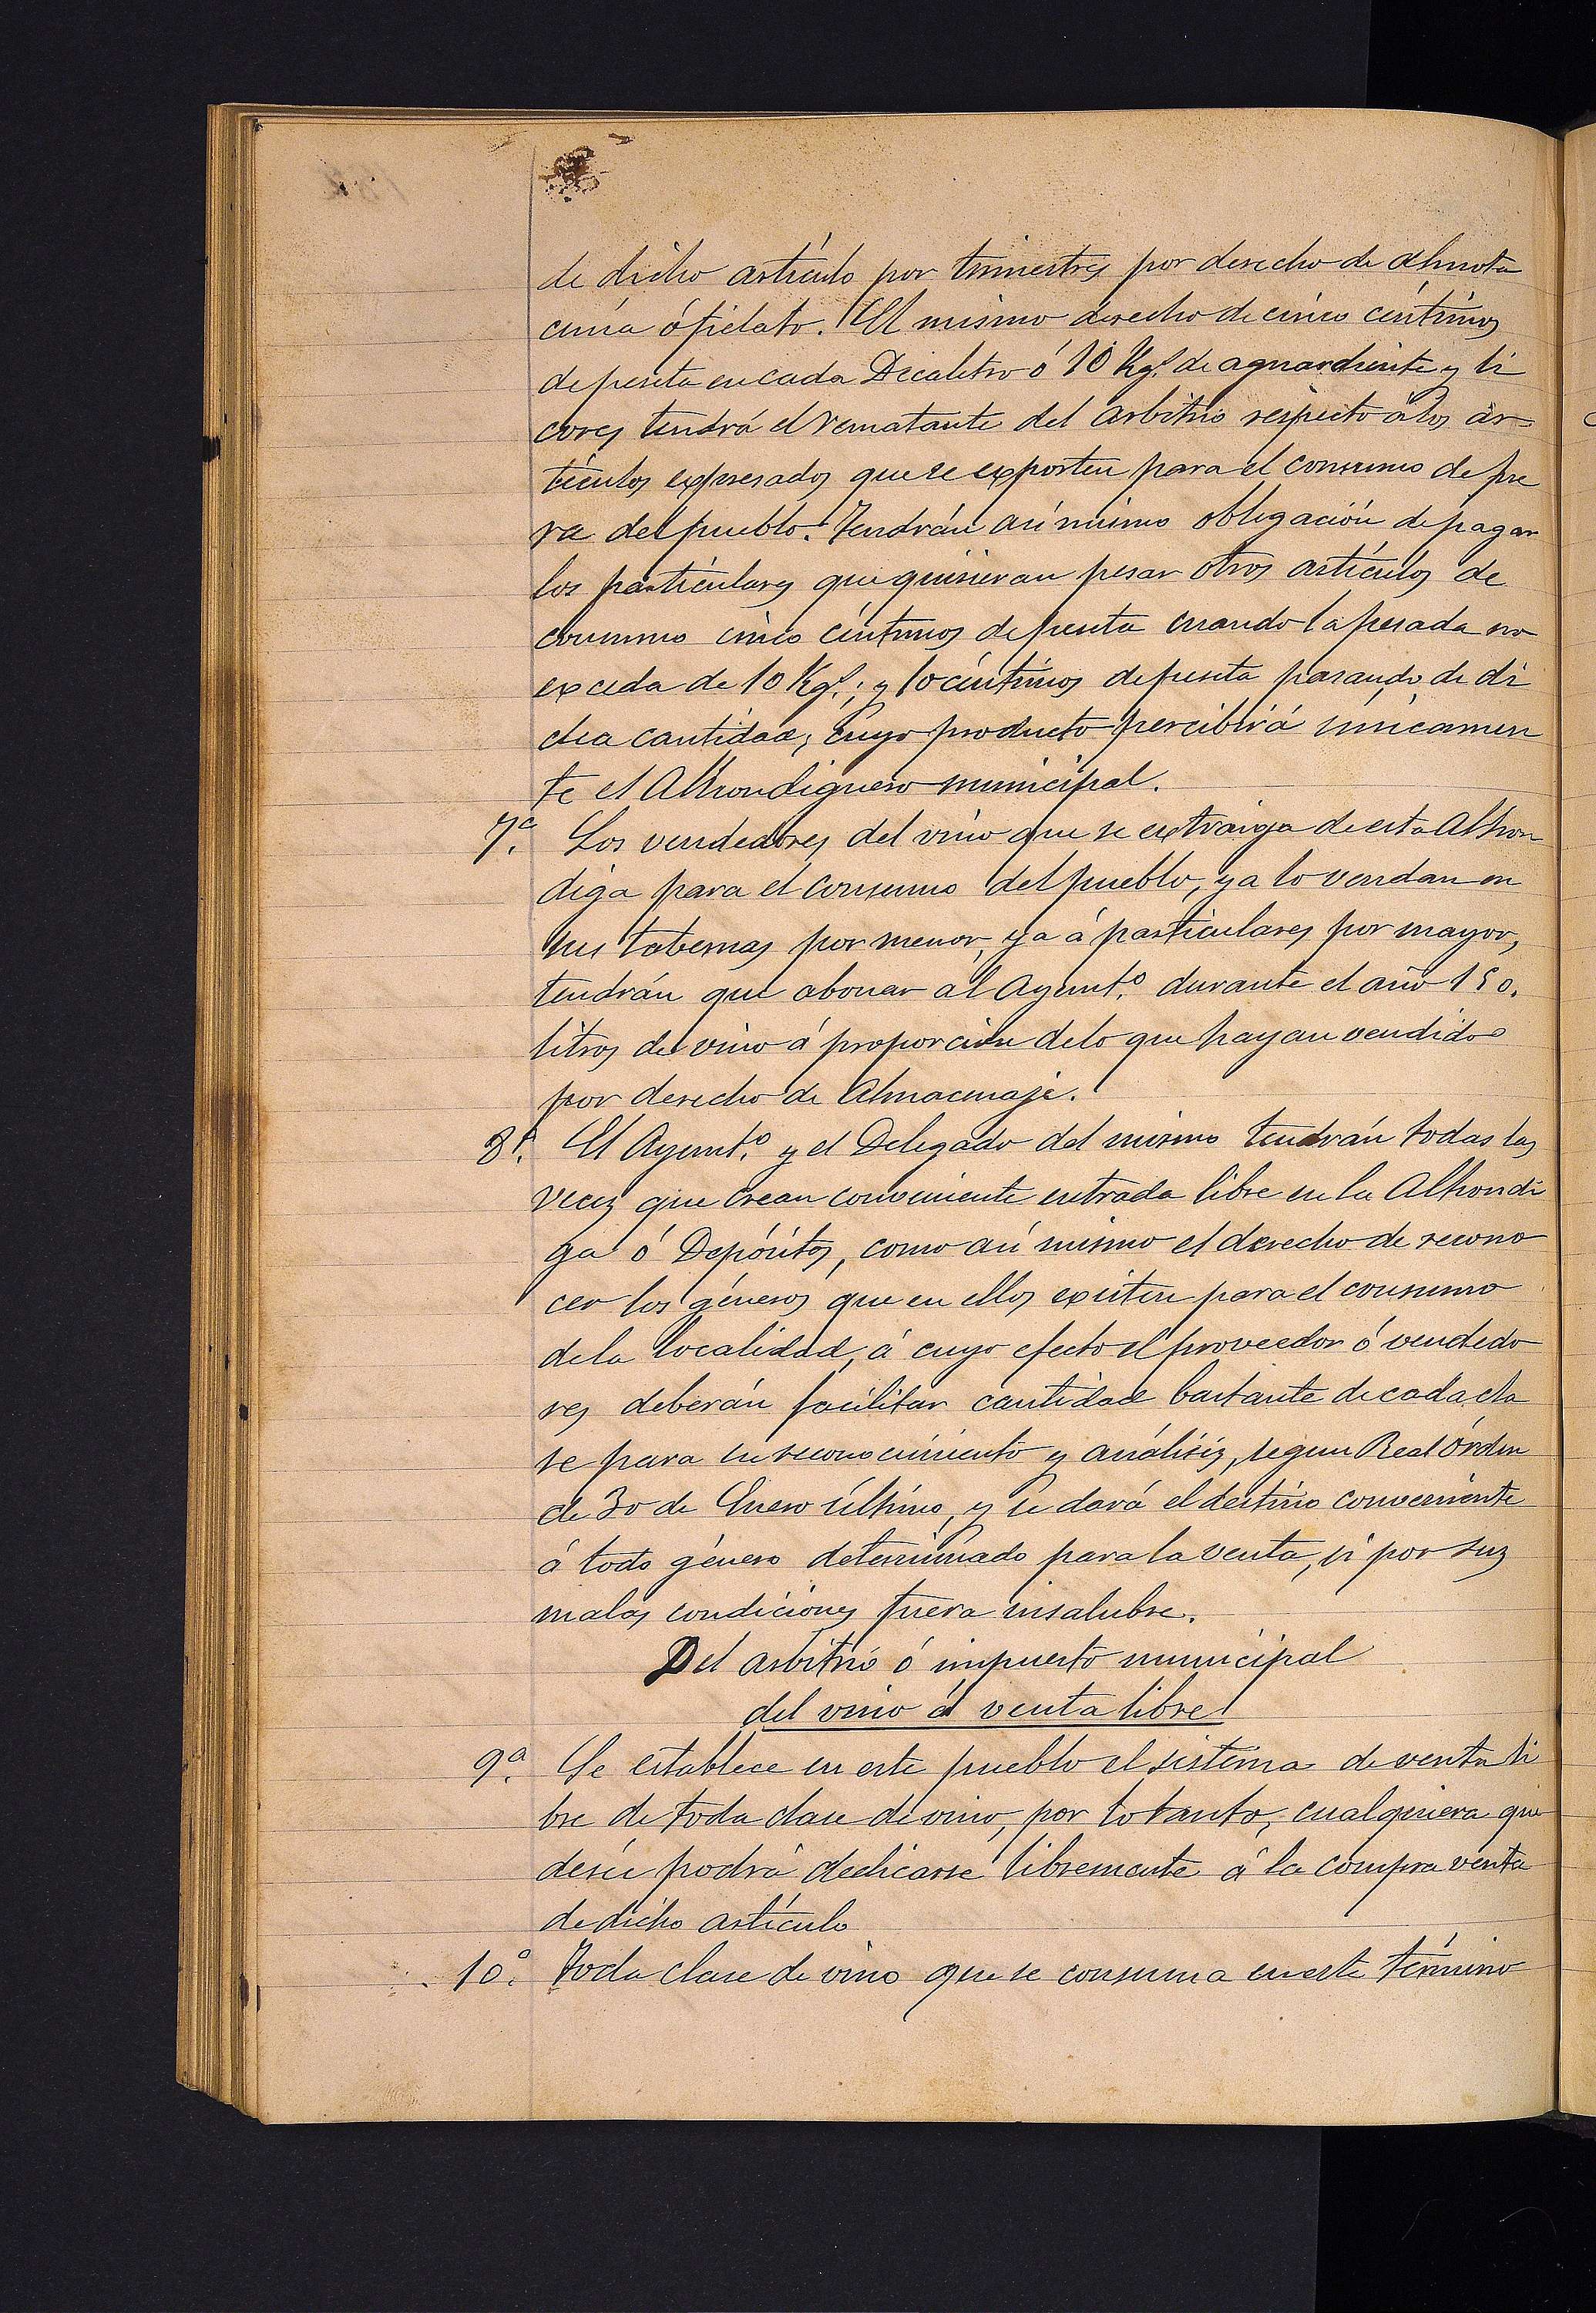 de dicho artículo por trimestres por derecho de almota
cenía ó fielato. El mismo derecho de cinco céntimos
de peseta en cada Decalitro ó 10 Kgs. de aguardiente y li
cores tendrá el rematante del arbitrio respecto á los ar=
tículos expresados que se exporten para el consumo de fue
ra del pueblo. Tendrán así mismo obligación de pagar
los particulares que quisieran pesar otros artículos de
consumo cinco céntimos de peseta cuando la pesada no
exceda de 10 Kgs.; y 10 céntimos de peseta pasando de di
cha cantidad, cuyo producto percibirá únicamen
te el Alhondiguero municipal.
7ª. Los vendedores del vino que se extraiga de esta Alhon
diga para el consumo del pueblo, ya lo vendan en
sus tabernas por menor, ya á particulares por mayor,
tendrán que abonar al Ayuntº. durante el año 150.
litros de vino á proporción de lo que hayan vendido
por derecho de Almacenaje.
8ª. El Ayuntº. y el Delegado del mismo tendrán todas las
veces que crean conveniente entrada libre en la Alhondi
ga ó Depósitos, como así mismo el derecho de recono
cer los géneros que en ellos existen para el consumo
de la localidad, á cuyo efecto el proveedor ó vendedo
res deberán facilitar cantidad bastante de cada cla
se para su reconocimiento y análisis, segun Real órden
de 30 de Enero último, y se dará el destino conveniente
á todo género determinado para la venta, si por sus
malas condiciones fuera insalubre.
Del arbitrio ó impuesto municipal
del vino á venta libre
9ª. Se establece en este pueblo el sistema de venta li
bre de toda clase de vino, por lo tanto, cualquiera que
desée podrá dedicarse libremente á la compra venta
de dicho artículo
10ª. Toda clase de vino que se consuma en este término